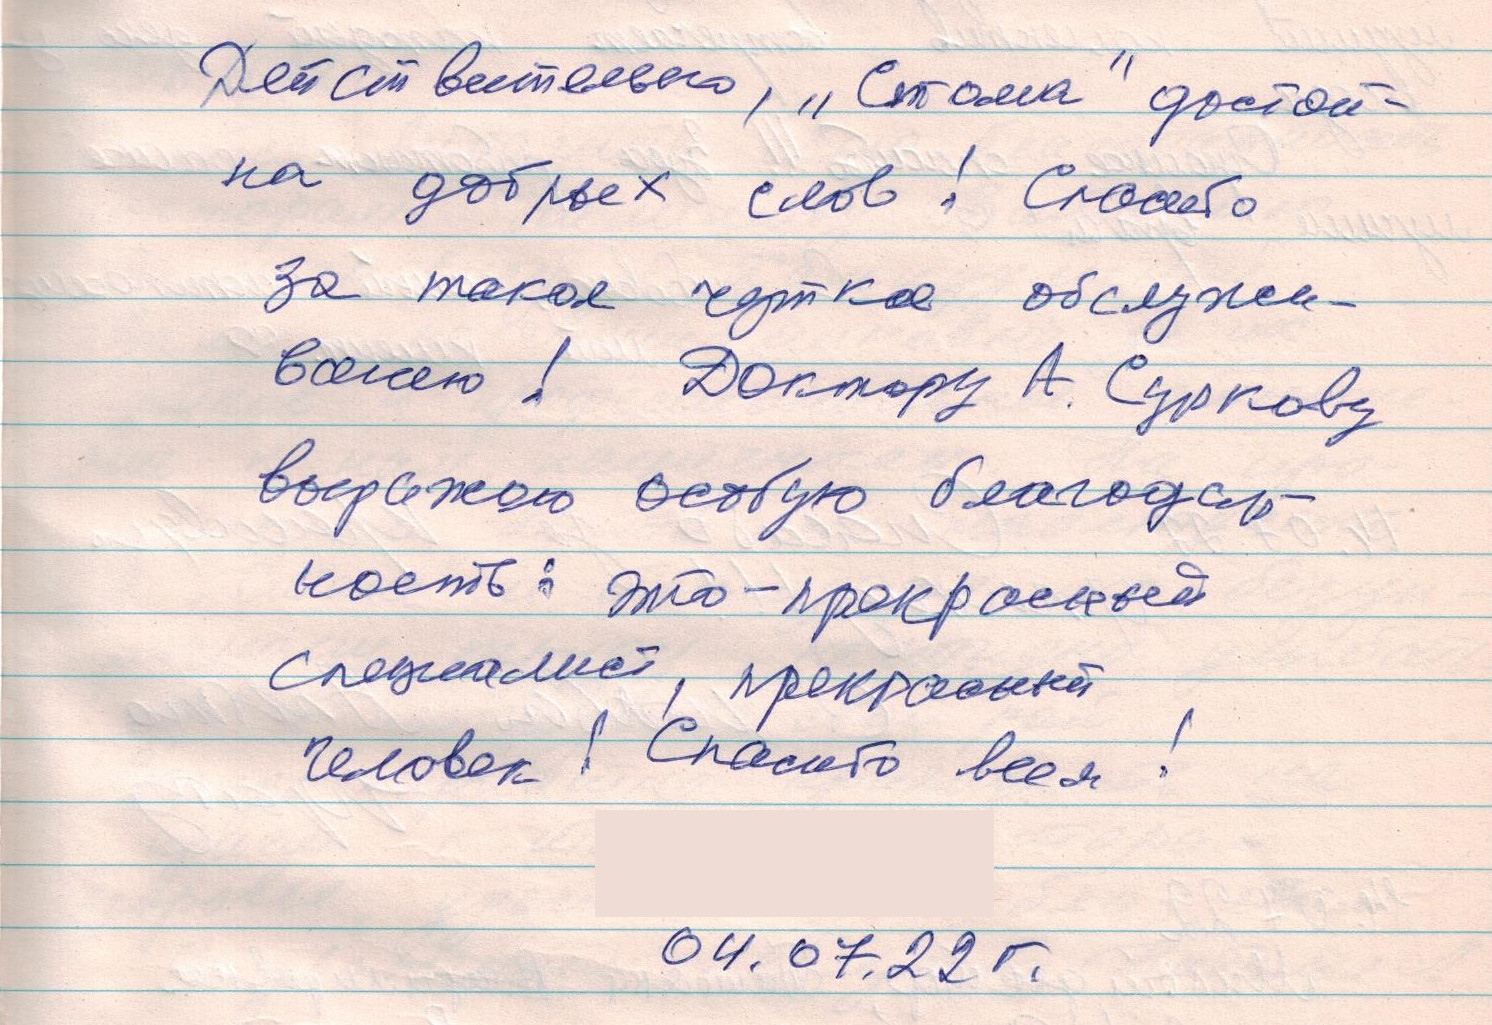 Действительно, „Стома" достой-
на добрых слов! Спасибо
за такое чуткое обслужи-
вание! Доктору А. Суркову
выражаю особую благодар-
ность: это - прекрасный
специалист, прекрасный
человек! Спасибо всем!
04.07.22 г.